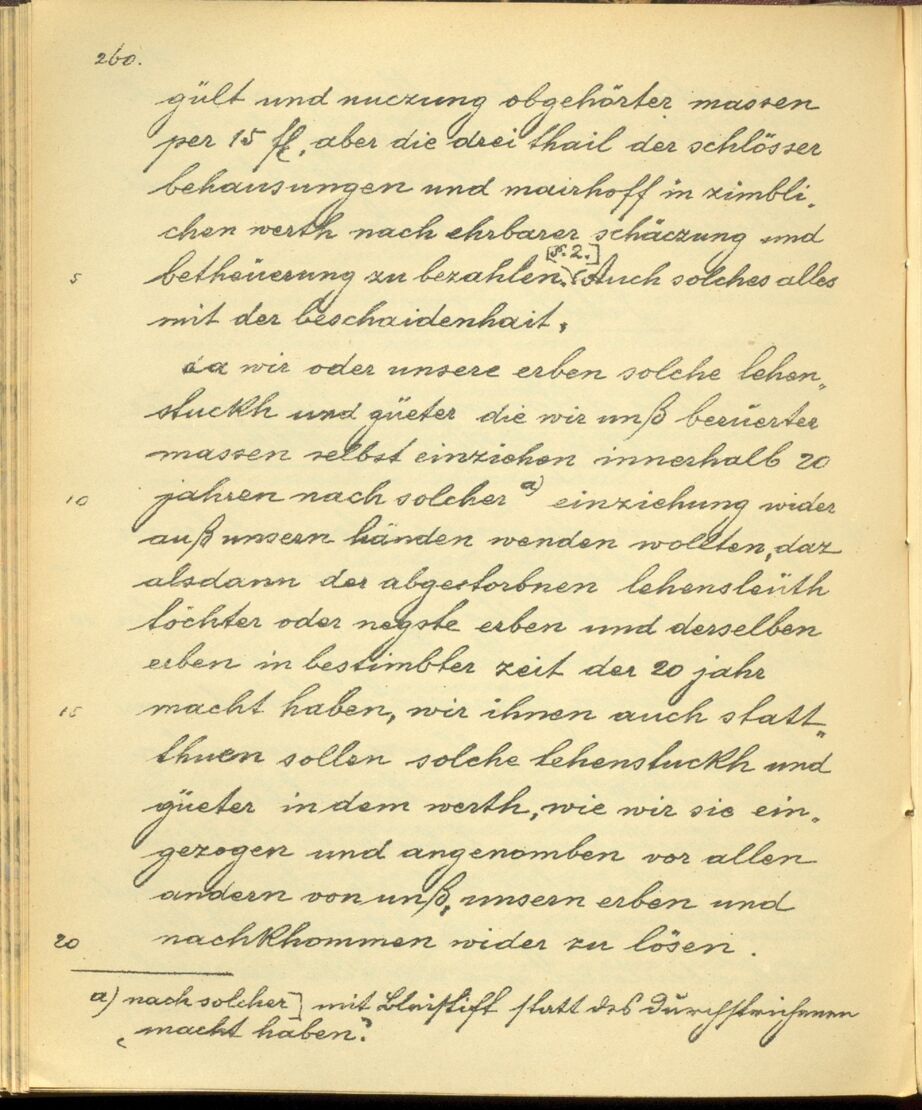 260.
gült und nuczung obgehörter massen
per 15 fl, aber die drei thail der schlösser
behausungen und mairhoff in zimbli„
chen werth nach ehrbarer schäczung und
[S. 2.]
5 betheüerung zu bezahlen. (Auch solches alles
mit der bescheidenhait,
da wir oder unsere erben solche lehen„
stuckh und güeter die wir unß berüerter
massen selbst einziehen innerhalb 20
10 jahren nach solcher a) einziehung wider
auß unsern händen wenden wollten, daz
alsdann der abgestorbnen lehensleüth
töchter oder negste erben und derselben
erben in bestimbter zeit der 20 jahr
15 macht haben, wir ihnen auch statt„
thuen sollen solche lehenstuckh und
güeter in dem werth, wie wir sie ein„
gezogen und angenomben vor allen
andern von unß, unsern erben und
20 nachkhommen wider zu lösen.
a) nach solcher] mit Bleistift statt des Durchstrichenen
„macht haben."